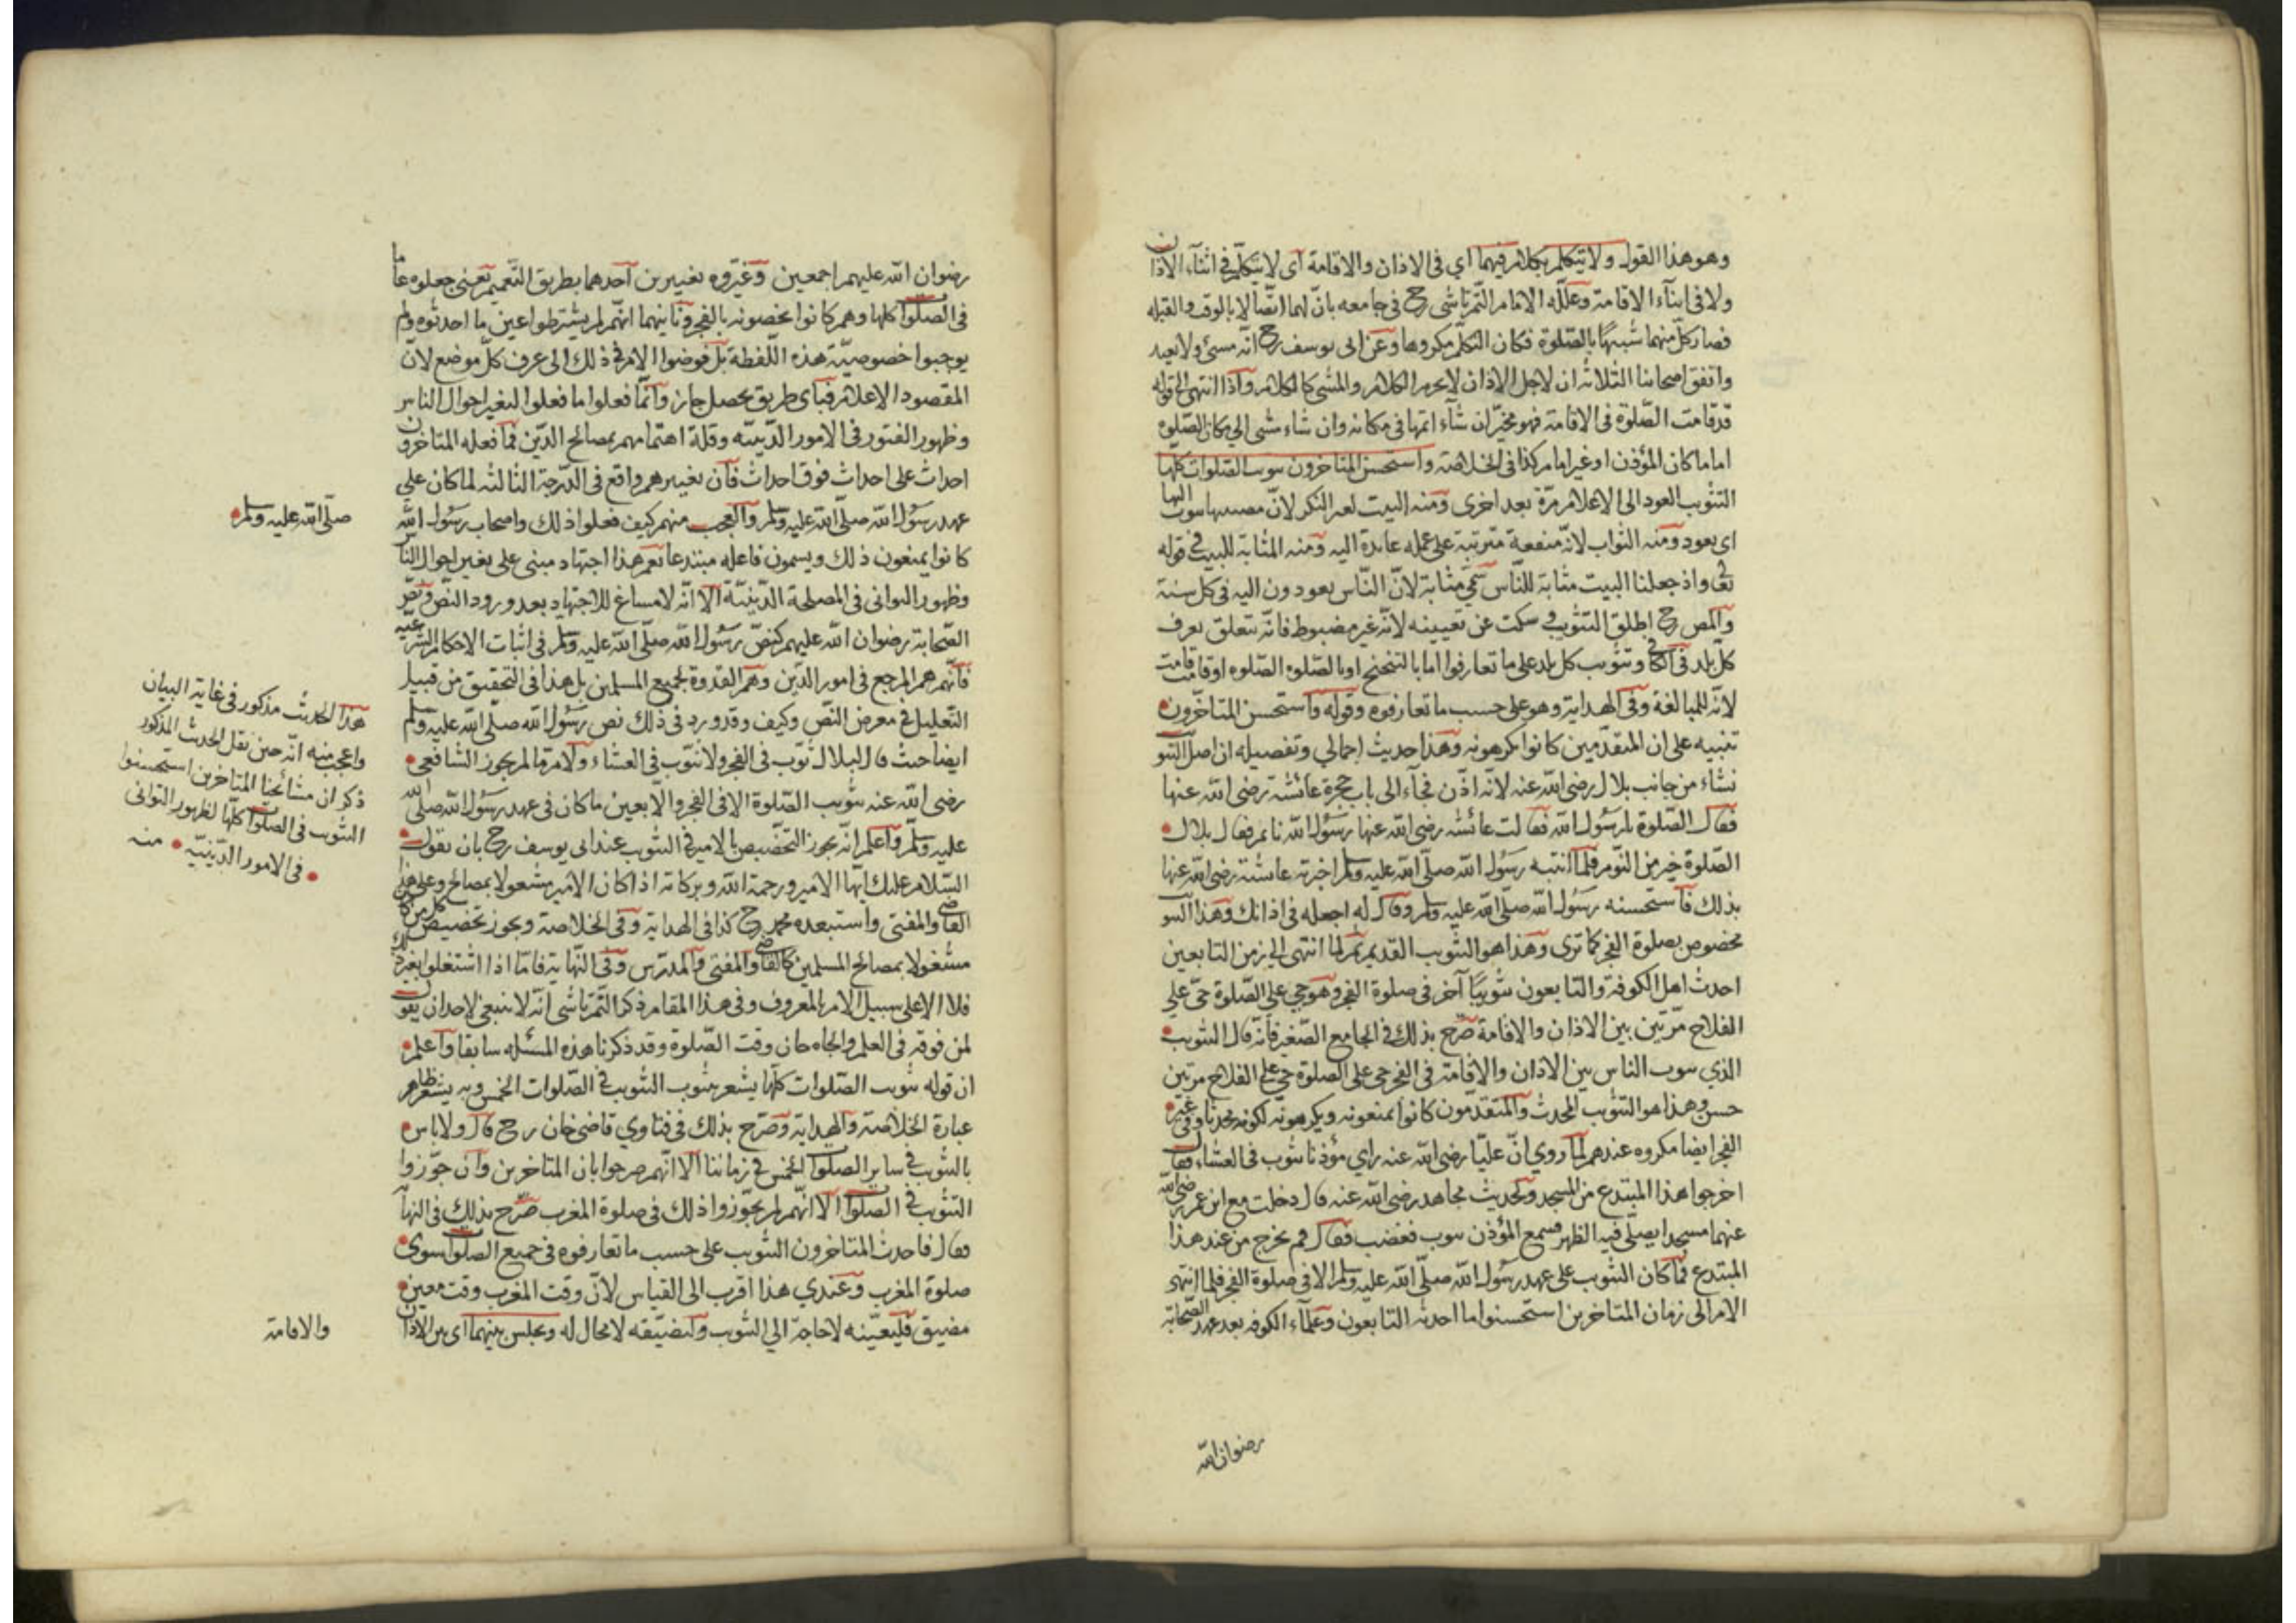 وهو هذا القول ولا يتكلم بكلام فيهما اي في الاذان والاقامة اى لا يتكلم في اثناء الاذان
ولا في اثناء الاقامة وعلله الامام التمرتاشى رح في جامعه بان لهما اتصالا بالوقت والقبلة
فصار كل منهما شبيها بالصلوة فكان التكلم مكروها وعن ابى يوسف رح انه مسئ ولا يعيد
واتفق اصحابنا الثلاثة ان لاجل الاذان لا يحرم الكلام والمشى كالكلام واذا انتهى الى قوله
قد قامت الصلوة في الاقامة فهو مخير ان شاء اتمها في مكانه وان شاء مشى الي مكان الصلوه
اماما كان المؤذن او غير امام كذا في الخلاصة واستحسن المتاخرون تثويب الصلوات كلها
التثويب العود الى الاعلام مرة بعد اخرى ومنه الثيب لان مصيبها يثوب اليها
اى يعود ومنه الثواب لانه منفعة مترتبة على عمله عايدة اليه ومنه المثابة للبيت في قوله
تعالى واذ جعلنا البيت مثابة للناس سمي مثابة لان الناس يعودون اليه في كل سنة
والمص رح اطلق التثويب وسكت عن تعيينه لانه غير مضبوط فانه يتعلق بعرف
كل بلد فى الكافي وتثويب كل بلد على ما تعارفوا اما بالتنحنح او بالصلوه الصلوه او قامت قامت
لانه للمبالغة وفي الهداية وهو على حسب ما تعارفوه وقوله واستحسن المتاخرون
تنبيه على ان المتقدمين كانوا يكرهونه وهذا حديث اجمالي وتفصيله ان اصل التثويب
نشاء من جانب بلال رضى الله عنه لانه اذن فجاء الى باب حجرة عائشة رضى الله عنها
فقال الصلوة يا رسول الله فقالت عائشه رضى الله عنها رسول الله نائم فقال بلال
الصلوة خير من النوم فلما انتبه رسول الله صلى الله عليه وسلم اخبرته عائشة رضى الله عنها
بذلك فاستحسنه رسول الله صلى الله عليه وسلم وقال له اجعله في اذانك وهذا التثويب
مخصوص بصلوة الفجر كما ترى وهذا هو التثويب القديم ثم لما انتهى الي زمن التابعين
احدث اهل الكوفة والتابعون تثويبا آخر في صلوة الفجر وهو حي على الصلوة حى على
الفلاح مرتين بين الاذان والاقامة صرح بذلك في الجامع الصغير فانه قال التثويب
الذي يثوب الناس بين الاذان والاقامة في الفجر حى على الصلوة حي على الفلاح مرتين
حسن وهذا هو التثويب المحدث والمتقدمون كانوا يمنعونه ويكرهونه لكونه محدثا وفي غير
الفجر ايضا مكروه عندهم لما روي ان عليا رضى الله عنه راي مؤذنا يثوب في العشاء فقال
اخرجوا هذا المبتدع من المسجد ولحديث مجاهد رضى الله عنه قال دخلت مع ابن عمر رضى الله
عنهما مسجدا يصلى فيه الظهر فسمع المؤذن يثوب فغضب فقال قم نخرج من عند هذا
المبتدع فما كان التثويب على عهد رسول الله صلى الله عليه وسلم الا في صلوة الفجر فلما انتهى
الامر الى زمان المتاخرين استحسنوا ما احدثه التابعون وعلماء الكوفه بعد عهد الصحابة
رضوان الله
رضوان الله عليهم اجمعين وغيروه تغييرين احدهما بطريق التعميم يعنى جعلوه عاما
في الصلوات كلها وهم كانوا يخصونه بالفجر وثانيهما انهم لم يشترطوا عين ما احدثوه ولم
يوجبوا خصوصية هذه اللفظة بل فوضوا الامر في ذلك الى عرف كل موضع لان
المقصود الاعلام فباى طريق يحصل جاز وانما فعلوا ما فعلوا لتغير احوال الناس
وظهور الفتور في الامور الدينيه وقلة اهتمامهم بمصالح الدين فما فعله المتاخرون
احداث على احداث فوق احداث فان تغييرهم واقع في الدرجة الثالثة لما كان علي
عهد رسول الله صلى الله عليه وسلم والعجب منهم كيف فعلوا ذلك واصحاب رسول الله
صلى الله عليه وسلم
كانوا يمنعون ذلك ويسمون فاعله مبتدعا نعم هذا اجتهاد مبنى على تغير احوال الناس
وظهور التوانى في المصلحة الدينية الا انه لا مساغ للاجتهاد بعد ورود النص ونص
الصحابة رضوان الله عليهم كنص رسول الله صلى الله عليه وسلم في اثبات الاحكام الشرعيه
فانهم هم المرجع في امور الدين وهم القدوة لجميع المسلمين بل هذا في التحقيق من قبيل
التعليل في معرض النص وكيف وقد ورد في ذلك نص رسول الله صلى الله عليه وسلم
ايضا حيث قال لبلال ثوب في الفجر ولا تثوب في العشاء ولامر ما لم يجوز الشافعى
رضى الله عنه تثويب الصلوة الا في الفجر والا بعين ما كان في عهد رسول الله صلى الله
عليه وسلم واعلم انه يجوز التخصيص بالامير في التثويب عند ابى يوسف رح بان يقول
السلام عليك ايها الامير ورحمة الله وبركاته اذا كان الامير مشغولا بمصالح وعلى هذا
القاضى والمفتى واستبعده محمد رح كذا في الهداية وفي الخلاصة ويجوز تخصيص كل من كان
مشغولا بمصالح المسلمين كالقاضى والمفتى والمدرس وفى النهاية فاما اذا اشتغلوا بغير ذلك
فلا الا على سبيل الامر بالمعروف وفي هذا المقام ذكر التمرتاشى انه لا ينبغى لاحد ان يقول
لمن فوقه في العلم والجاه حان وقت الصلوة وقد ذكرنا هذه المسئله سابقا واعلم
ان قوله تثويب الصلوات كلها يشعر بثبوت التثويب في الصلوات الخمس وبه يشعر ظاهر
عبارة الخلاصة والهداية وصرح بذلك في فتاوي قاضى خان رح قال ولا باس
بالتثويب في ساير الصلوات الخمس في زماننا الا انهم صرحوا بان المتاخرين وان جوزوا
التثويب في الصلوات الا انهم لم يجوزوا ذلك في صلوة المغرب صرح بذلك في النهاية
فقال فاحدث المتاخرون التثويب على حسب ما تعارفوه في جميع الصلوات سوى
صلوة المغرب وعندي هذا اقرب الى القياس لان وقت المغرب وقت معين
مضيق فلتعينه لا حاجة الي التثويب ولتضيقه لا مجال له ويجلس بينهما اى بين الاذان
والاقامة
هذا الحديث مذكور في غاية البيان
واعجب منه انه حين نقل الحديث المذكور
ذكر ان مشائخنا المتاخرين استحسنوا
التثويب في الصلوات كلها لظهور التوانى
في الامور الدينية منه